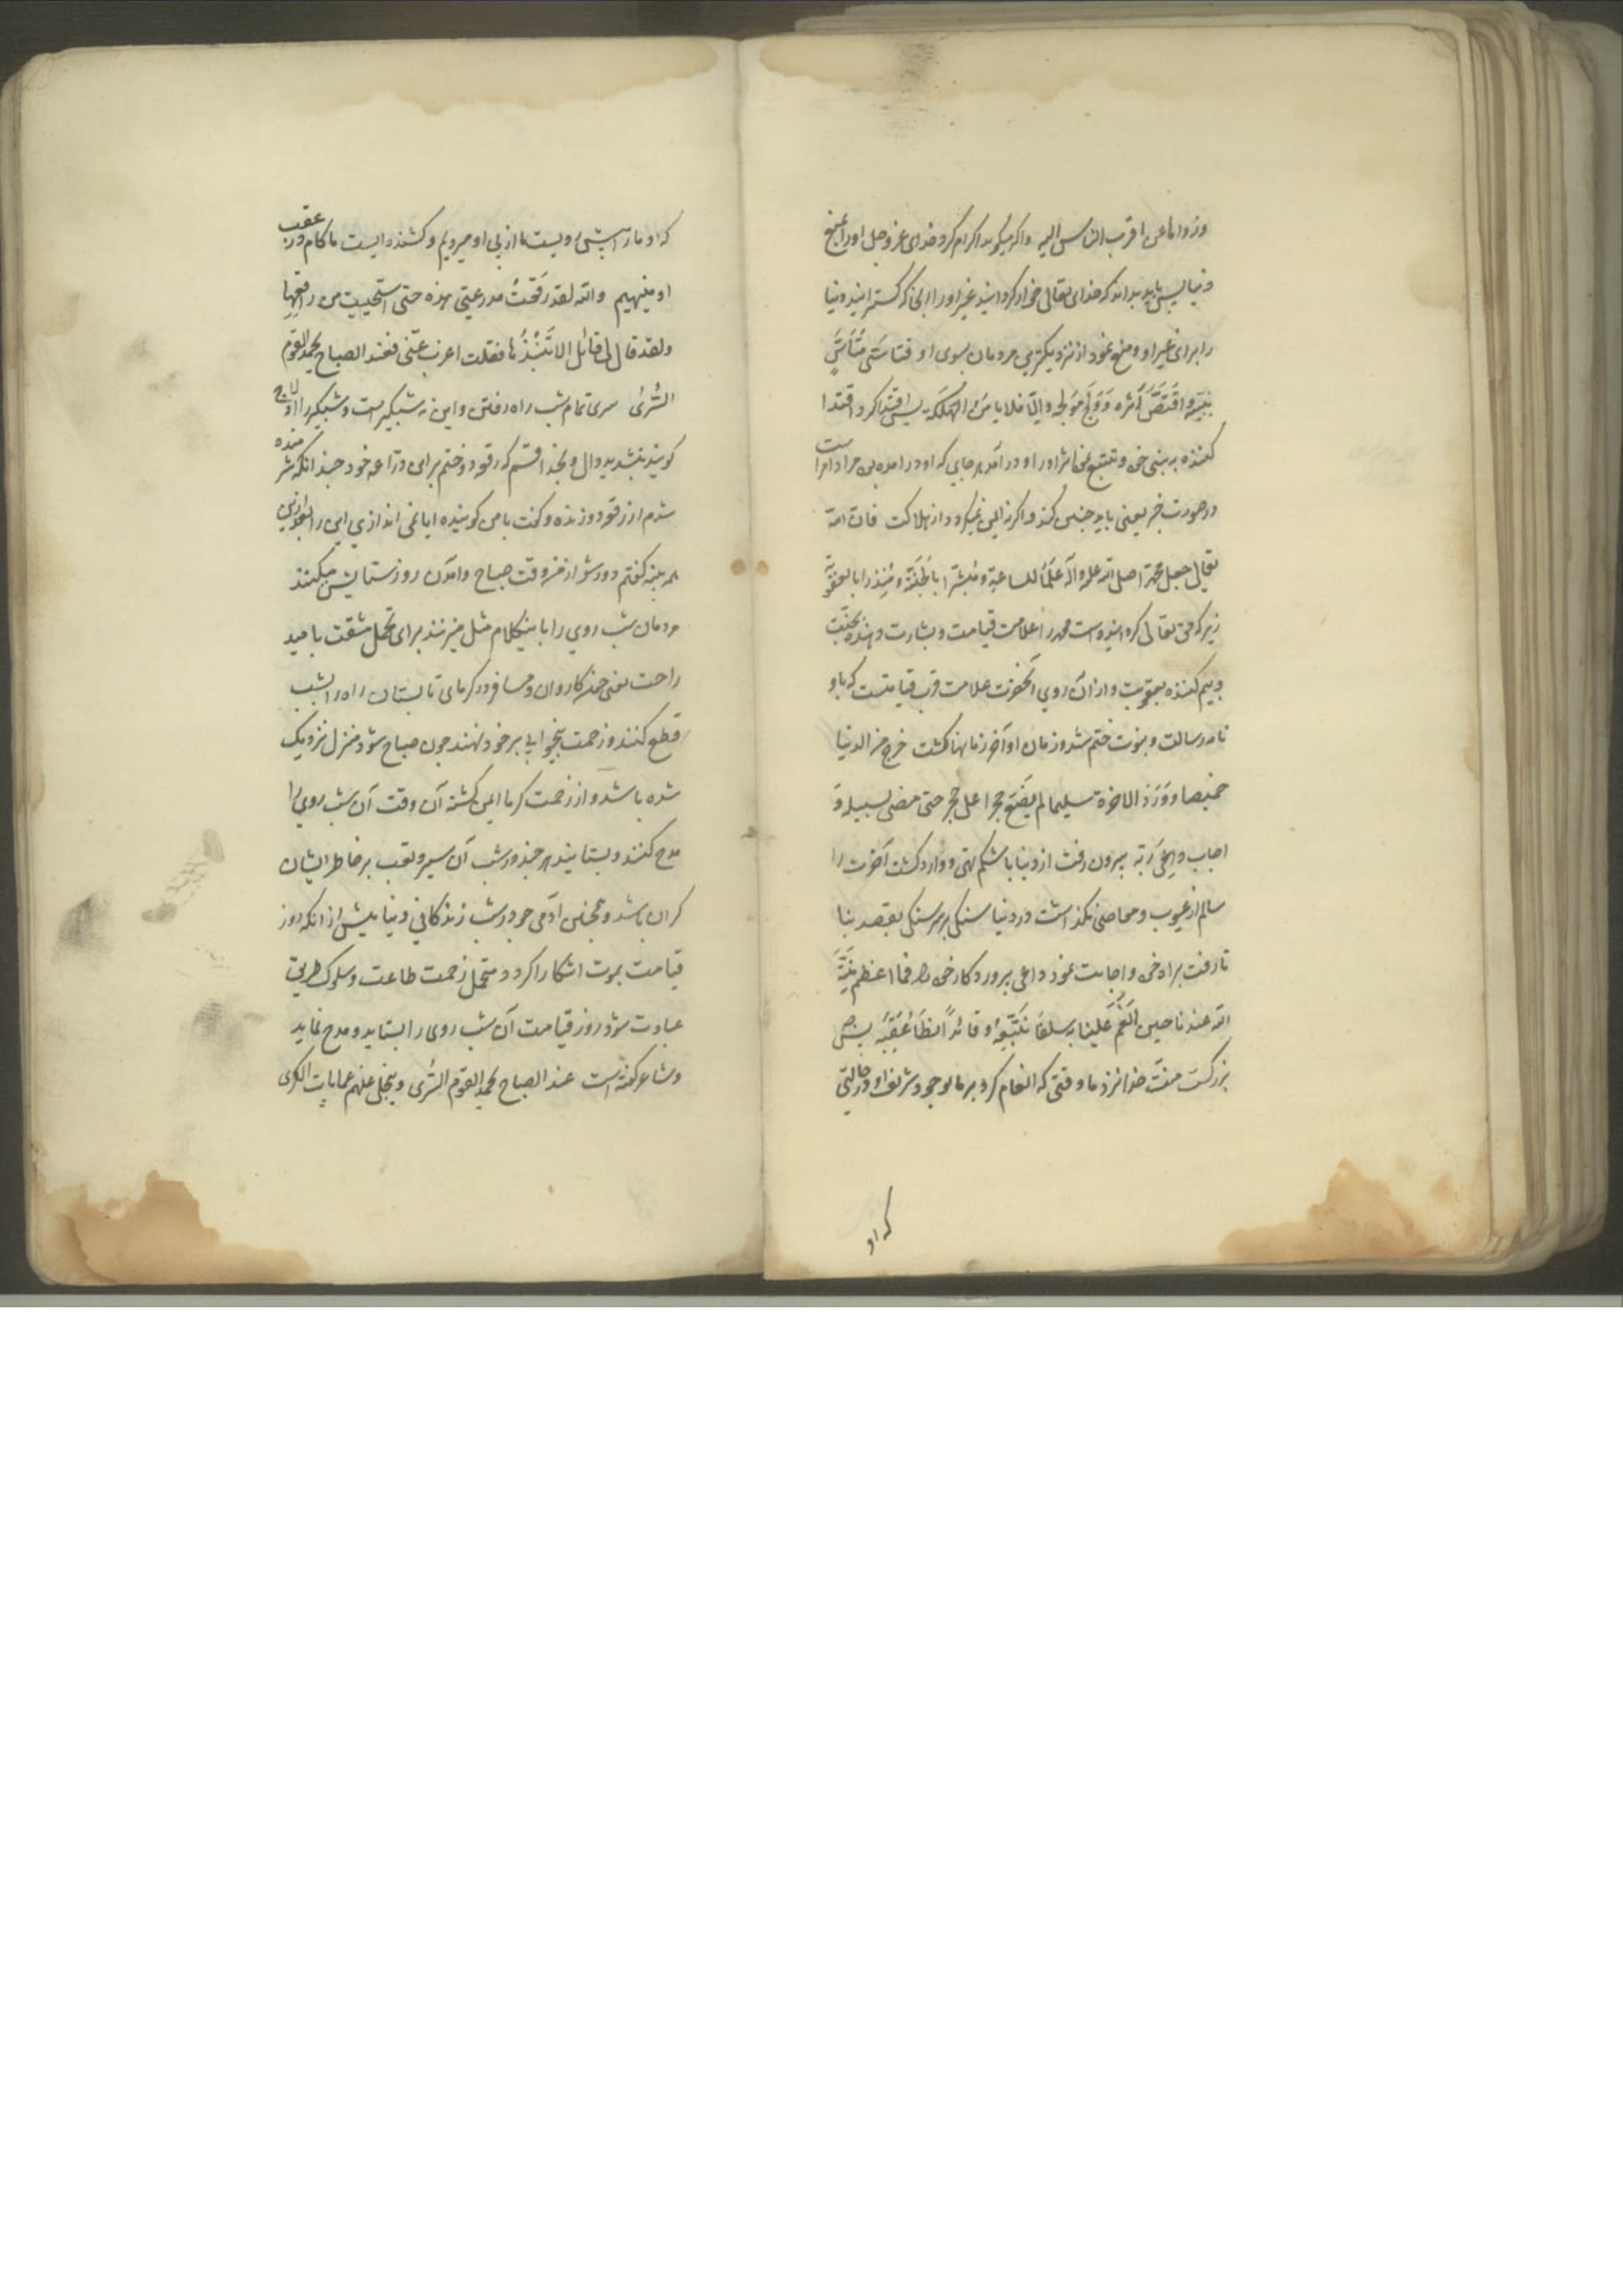 وزواها عن اقرب الناس الیه واکر میکوید اکرام کرد خدای عز و جل او را بمنع
دنیا پس باید بداند که خدای تعالی خوار کردانید غیر او را از انجا که کسترانید دنیا
را برای غیر او و منع نمود از نزدیکترین مردمان بسوی او فتاسّی متأسّی
بنبیّه و اقتصّ اثره و ولج مولجه و الّا فلا یامن الهلکه پس اقتدا کرد اقتدا
کننده به نبی خود و تتبع نمود اثر او را و در آمد هر جایی که او در آمده این مراد امر است
در صورت خبر یعنی باید چنین کند و اکرنه ایمن نمیکردد از هلاکت فان الله
تعالی جعل محمدا صلی الله علیه و آله علما للساعة و مبشرا بالجنة و منذرا بالعقوبة
زیرا که حق تعالی کردانیده است محمد را علامت قیامت و بشارت دهنده بجنت
و بیم کننده بعقوبت و از آن روی آنحضرت علامت قرب قیامتست که باو
نامه رسالت و نبوت ختم شد و زمان او آخر زمانها کشت خرج من الدنیا
خمیصا و ورد الاخرة سلیما لم یضع حجرا علی حجر حتی مضی لسبیله و
اجاب داعی ربه بیرون رفت از دنیا با شکم تهی و وارد کشت آخرت را
سالم از عیوب و معاصی نکذاشت در دنیا سنکی بر سر سنکی بقصد بنا
تا رفت براه خود و اجابت نمود داعی پروردکار خود را فما اعظم منّة
الله عندنا حین انعم علینا به سلفا نتّبعه و قائدا نطأ عقبه پس چه
بزرکست منت خدا نزد ما وقتی که انعام کرد بر ما بوجود شریف او در حالتی
که او
که او ما را پیشروایست ما از پی او میرویم و کشنده ایست ما کام در عقب
او مینهیم والله لقد رقعت مدرعتی هذه حتی استحییت من راقعها
ولقد قال لی قائل الا تنبذها فقلت اعزب عنی فعند الصباح یحمد القوم
السّری سری تمام شب راه رفتن و این نه شبکیر است و شبکیر را ادلاج
کویند بتشدید دال و بخدا قسم که رقعه دوختم برای درّاعه خود چندانکه شرمنده
شدم از رقعه دوزنده و کفت با من کوینده ایا نمی اندازی این را
کفتم دور شو از من وقت صباح و آمدن روز ستایش میکنند
مردمان شب روی را باینکلام مثل میزنند برای تحمل مشقت بامید
راحت یعنی چون کاروان و مسافر در کرمای تابستان راه را بشب
قطع کنند و زحمت بیخوابی بر خود نهند چون صباح شود منزل نزدیک
شده باشد و از زحمت کرما ایمن کشته آن وقت آن شب روی را
مدح کنند و بستایند هر چند در شب آن سیر و تعب بر خاطر ایشان
کران باشد و همچنین آدمی چو در شب زندکانی دنیا پیش از انکه روز
قیامت بموت اشکارا کردد متحمل زحمت طاعت و سلوک طریق
عبادت شود روز قیامت آن شب روی را بستاید و مدح نماید
و شاعر کفته است عند الصباح یحمد القوم السّری و ینجلی عنهم عمایات الکری